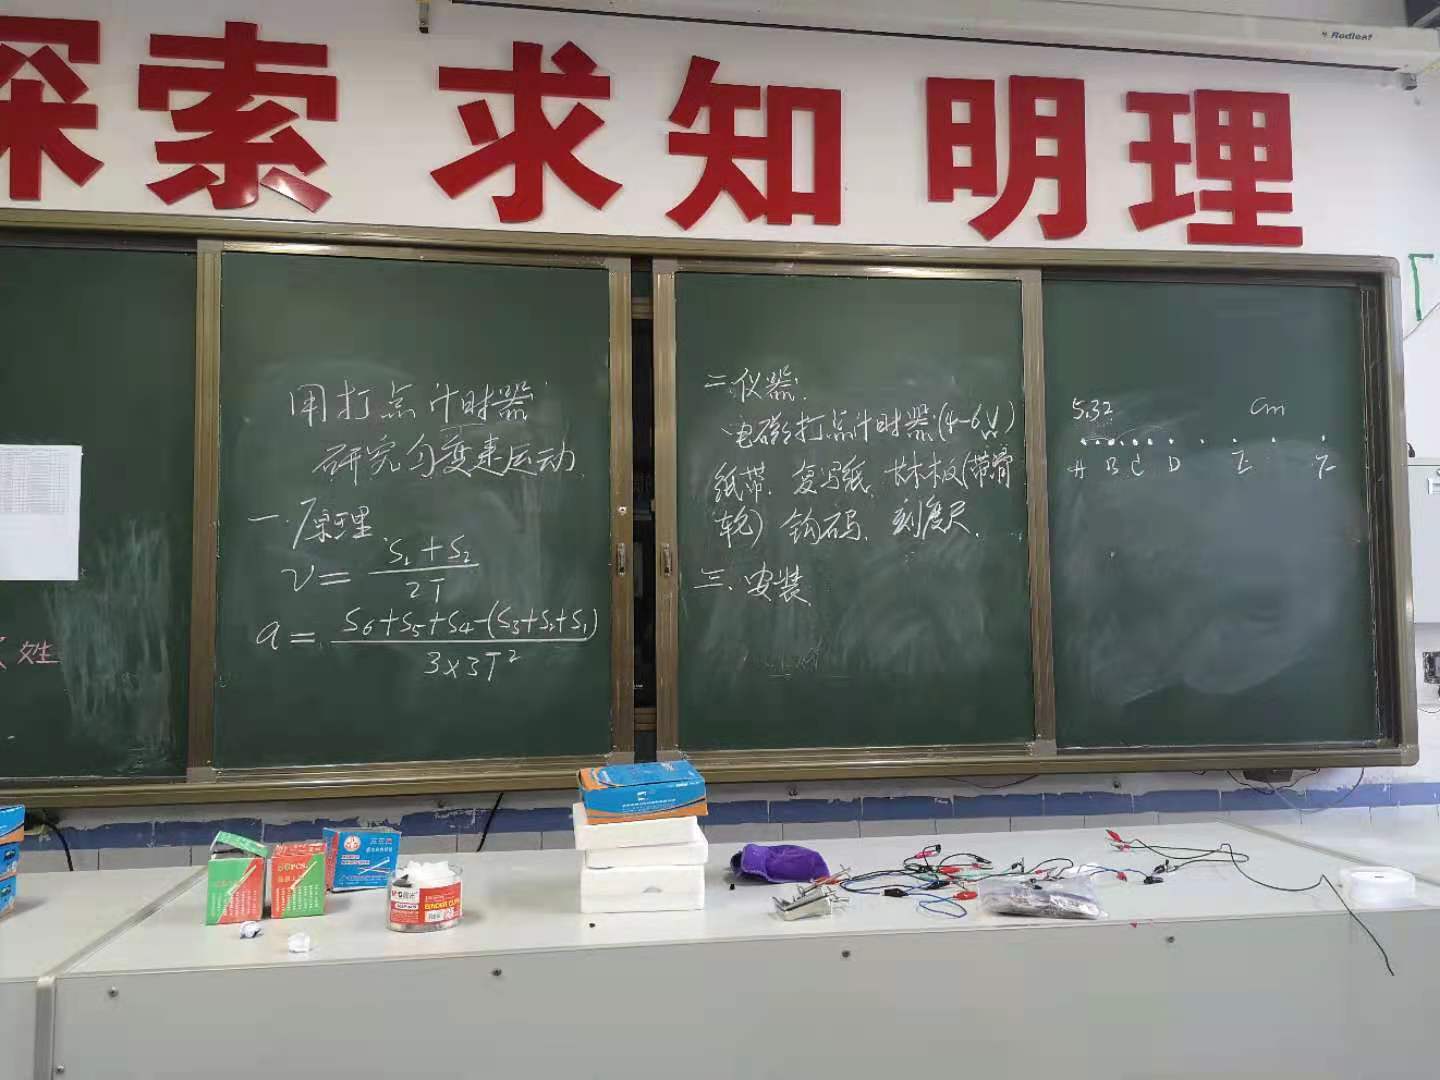 探索 求知 明理
Redleaf
用打点计时器
研究匀变速运动
一.原理
v = (S₁+S₂)/2T
a = (S₆+S₅+S₄-(S₃+S₂+S₁))/3×3T²
二.仪器:
电磁打点计时器(4-6V)
纸带、复写纸、长木板(带滑
轮)钩码、刻度尺.
三、安装
5.32 cm
A B C D E F
姓
BINDER CLIPS